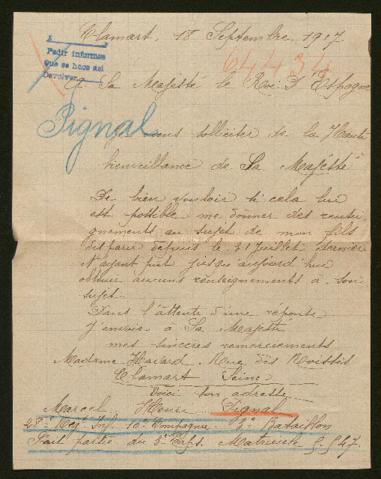 Clamart, 18 Septembre 1917
A
Pedir informes
que se hace así
Devolver
64434
A Sa Majesté le Roi d'Espagne
Pignal
vous solliciter de la Haute
bienveillance de Sa Majesté
De bien vouloir si cela lui
est possible me donner des rensei
gnements au sujet de mon fils
disparu depuis le 31 Juillet dernier
N'ayant put jusqu'aujourd'hui
obtenir aucuns renseignements à son
sujet.
Dans l'attente d'une réponse
J'envoie à Sa Majesté
mes sincères remerciements
Madame Havard. Rue des
Clamart Seine
Voici son adresse
Marcel Pignal
28e Reg. Inf. 10e Compagnie 3e Bataillon
Fait partie du Corps. Matricule